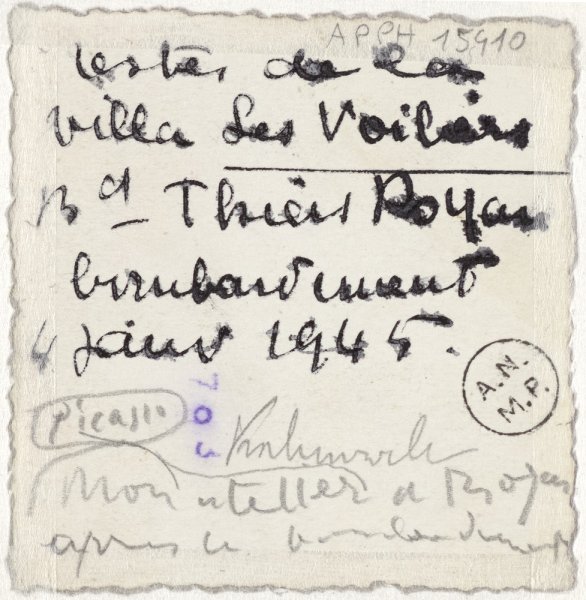 APPH 15910
restes de la
villa Les Voiliers
Bd Thiers Royan
bombardement
4 janv 1945.
A.N.
M.P.
703
Picasso
Mon atelier a Royan
apres le bombardement